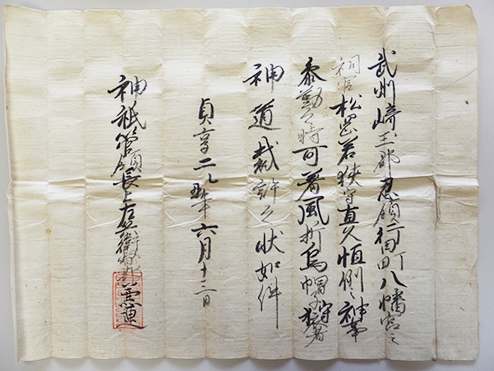 武州崎玉郡忍領町八幡宮之
祠官松岡若狭守直久恒例之神事
参勤之時可着風折烏帽子狩衣者
神道裁許之状如件
貞享二乙丑年六月十日
神祇管領長上兼連